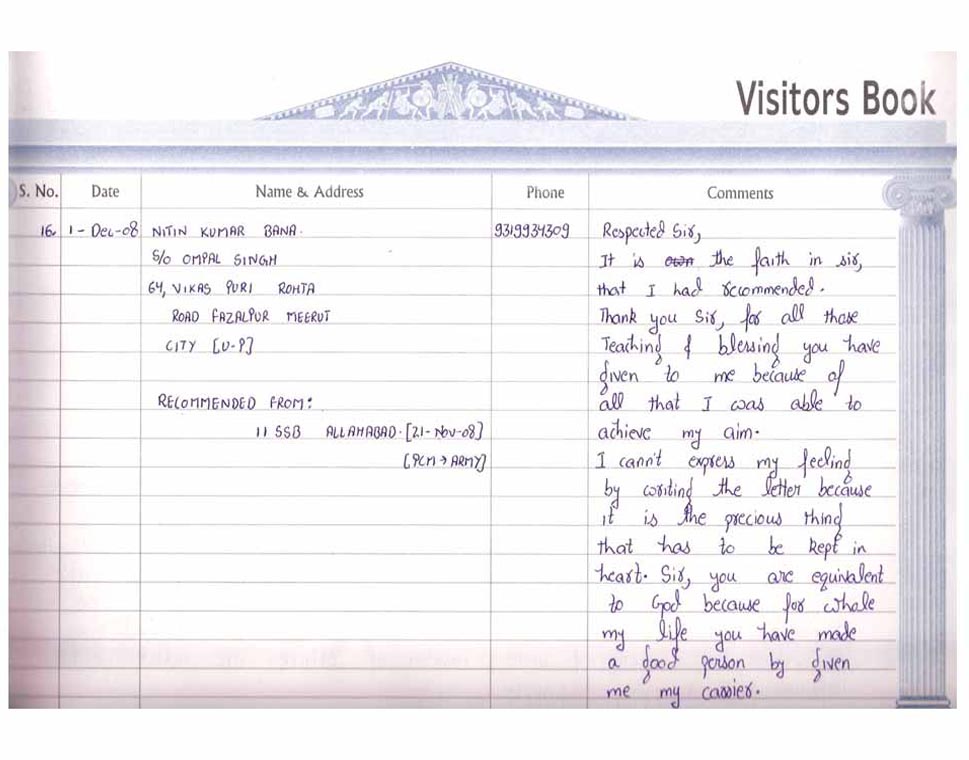 Visitors Book
S. No. Date Name & Address Phone Comments
16. 1-Dec-08 NITIN KUMAR BANA. 9319934309 Respected Sir,
S/O OMPAL SINGH It is own the faith in sir,
64, VIKAS PURI ROHTA that I had recommended.
ROAD FAZALPUR MEERUT Thank you Sir, for all those
CITY [U-P] Teaching & blessing you have
given to me because of
RECOMMENDED FROM: all that I was able to
11 SSB ALLAHABAD. [21-NOV-08] achieve my aim.
[PCM → ARMY] I cann't express my feeling
by writing the letter because
it is the precious thing
that has to be kept in
heart. Sir, you are equivalent
to God because for whole
my life you have made
a good person by given
me my carrier.